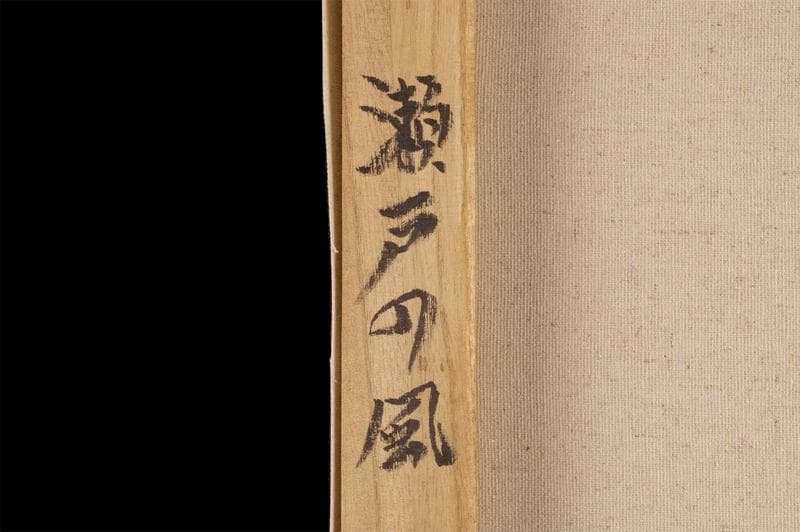 瀬戸の風